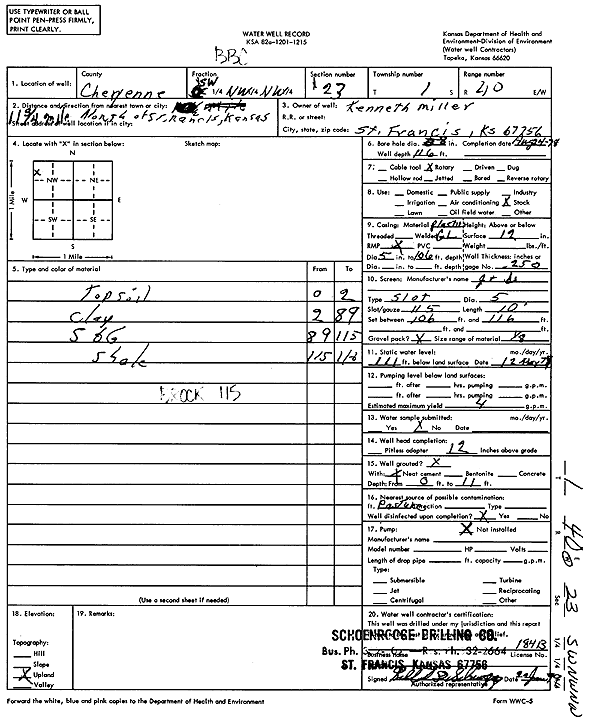 USE TYPEWRITER OR BALL
POINT PEN-PRESS FIRMLY,
PRINT CLEARLY.
WATER WELL RECORD
KSA 82a-1201-1215
Kansas Department of Health and
Environment-Division of Environment
(Water well Contractors)
Topeka, Kansas 66620
1. Location of well: County Cheyenne Fraction SW 1/4 NW 1/4 NW 1/4 Section number 23 Township number T 1 S Range number R 40 E/W
2. Distance and direction from nearest town or city: North of St. Francis, Kansas
Street address of well location if in city:
3. Owner of well: Kenneth Miller
R.R. or street:
City, state, zip code: St. Francis, Ks 67756
4. Locate with "X" in section below: Sketch map:
N
X NW NE
W E
SW SE
S
1 Mile
1 Mile
6. Bore hole dia. in. Completion date
Well depth 116 ft.
7: Cable tool X Rotary Driven Dug
Hollow rod Jetted Bored Reverse rotary
8. Use: Domestic Public supply Industry
Irrigation Air conditioning X Stock
Lawn Oil field water Other
9. Casing: Material plastic Height: Above or below
Threaded Welded GL Surface 12 in.
RMP X PVC Weight lbs./ft.
Dia. 5 in. to 106 ft. depth Wall Thickness: inches or
Dia. in. to ft. depth gage No. .250
5. Type and color of material From To
Topsoil 0 2
Clay 2 89
S&G 89 115
Shale 115 118
10. Screen: Manufacturer's name
Type Slot Dia. 5
Slot/gauze Length 10'
Set between 106 ft. and 116 ft.
ft. and ft.
Gravel pack? X Size range of material 1/8
11. Static water level: mo./day/yr.
111 ft. below land surface Date
12. Pumping level below land surfaces:
ft. after hrs. pumping g.p.m.
ft. after hrs. pumping g.p.m.
Estimated maximum yield 4 g.p.m.
13. Water sample submitted: mo./day/yr.
Yes X No Date
14. Well head completion:
Pitless adapter 12 Inches above grade
15. Well grouted? X
With: X Neat cement Bentonite Concrete
Depth: From 0 ft. to 11 ft.
16. Nearest source of possible contamination:
ft. Pasture Direction Type
Well disinfected upon completion? X Yes No
17. Pump: X Not installed
Manufacturer's name
Model number HP Volts
Length of drop pipe ft. capacity g.p.m.
Type:
Submersible Turbine
Jet Reciprocating
Centrifugal Other
(Use a second sheet if needed)
18. Elevation:
Topography:
Hill
Slope
X Upland
Valley
19. Remarks:
20. Water well contractor's certification:
This well was drilled under my jurisdiction and this report
SCHOENROGGE DRILLING CO.
Bus. Ph.
Business name License No.
ST. FRANCIS, KANSAS 67756
Signed Date
Authorized representative
Forward the white, blue and pink copies to the Department of Health and Environment
Form WWC-5
T 1 R 40 Sec 23 1/4 1/4 1/4 SWNWNW